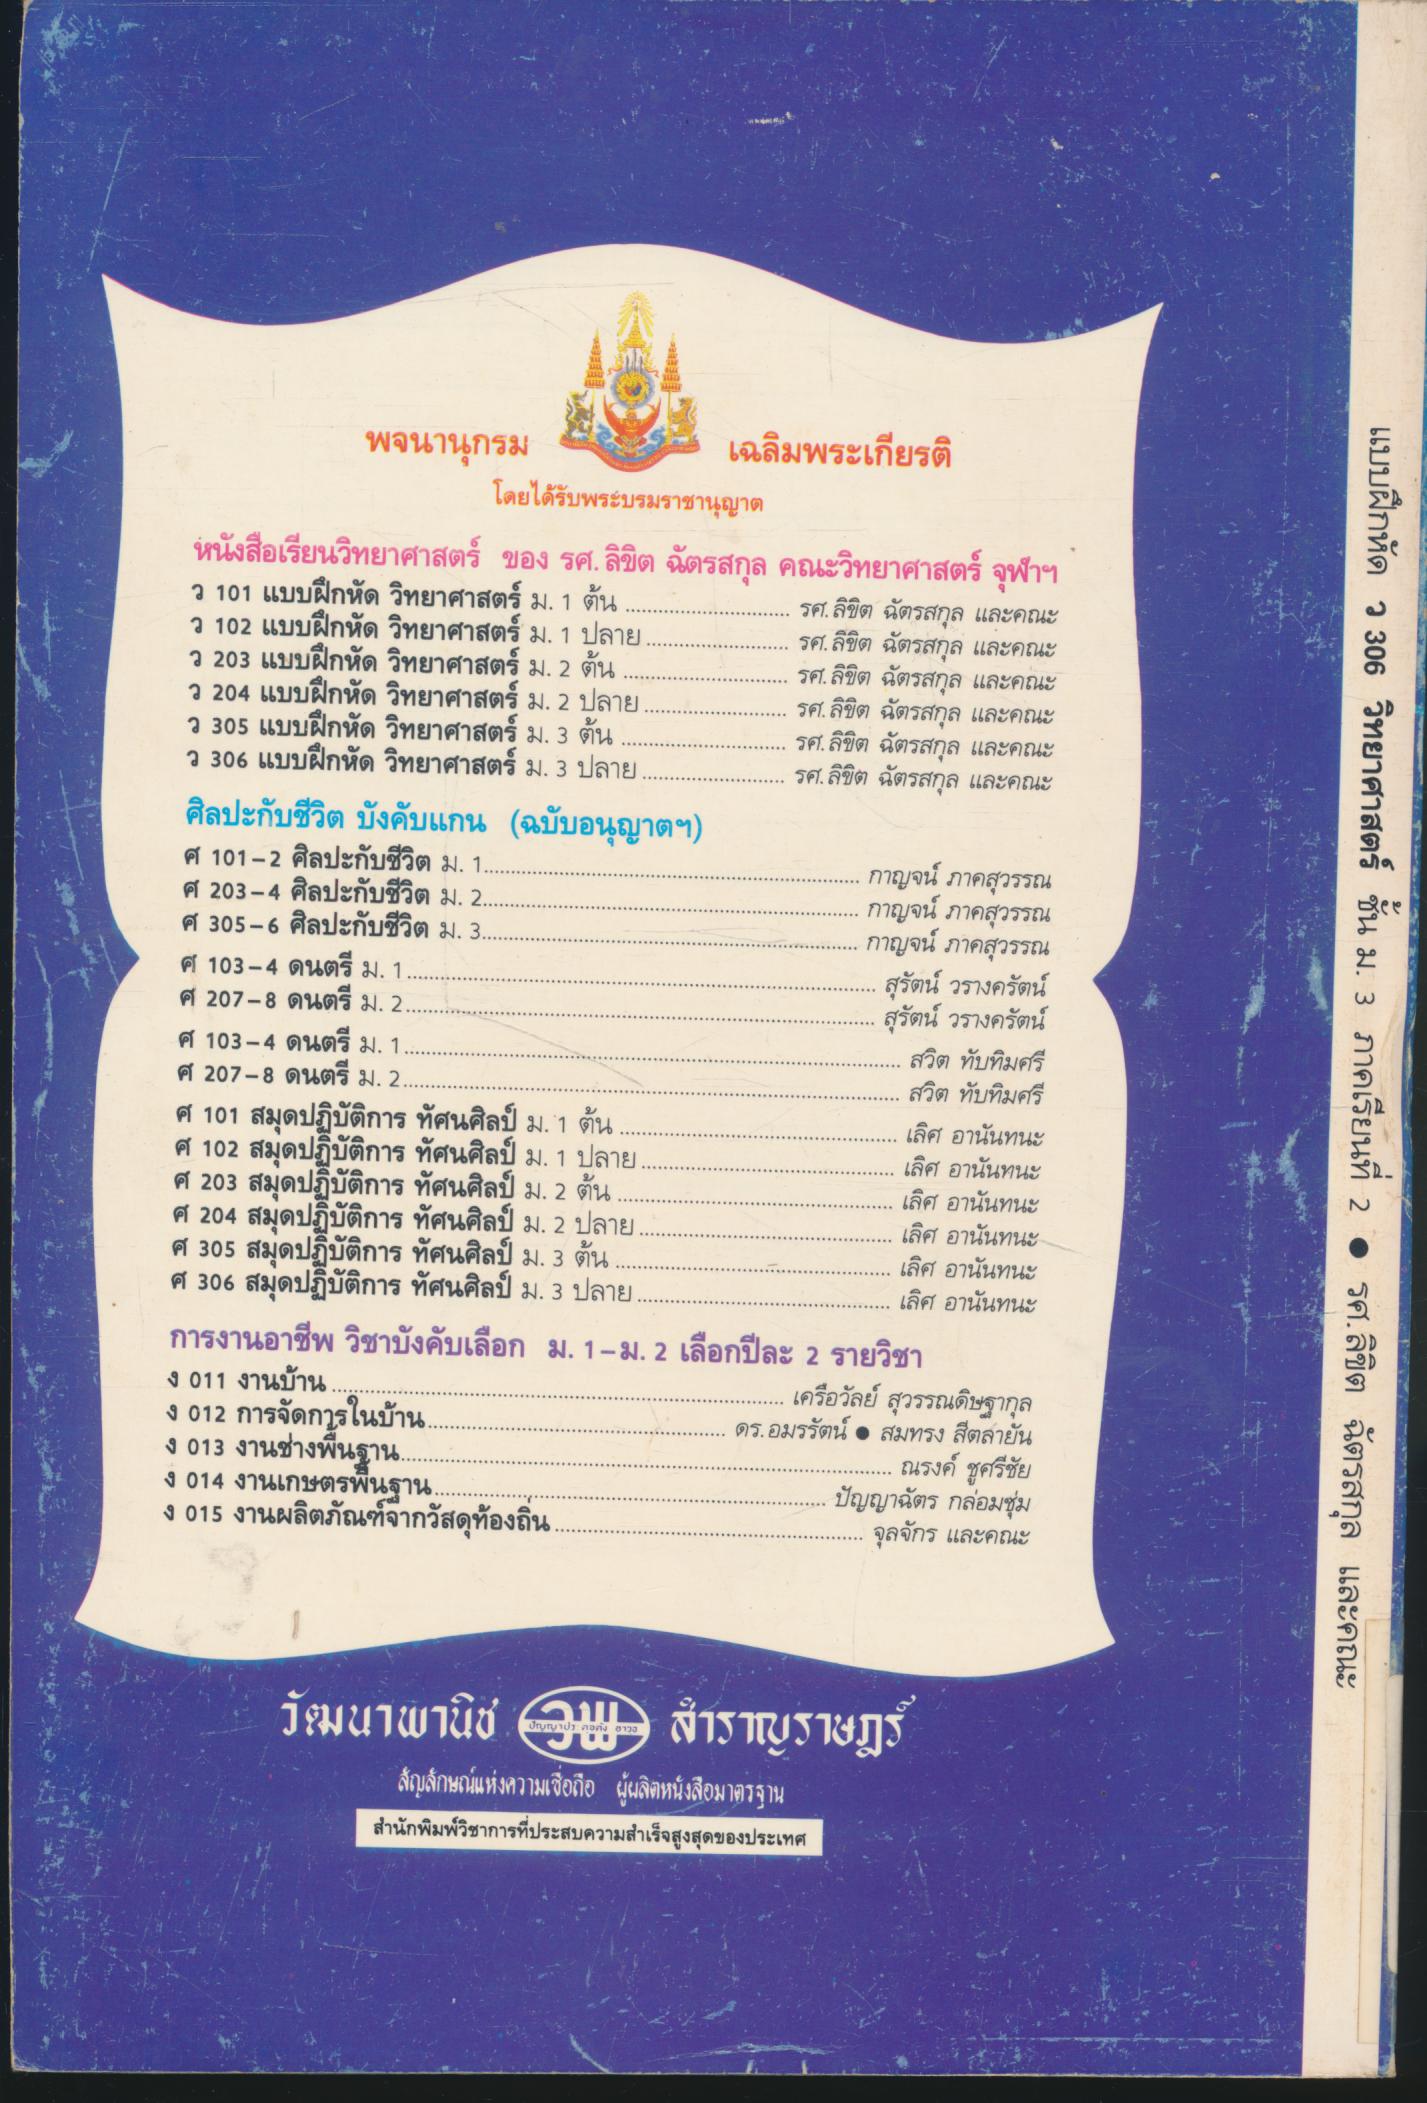 พจนานุกรม เฉลิมพระเกียรติ
โดยได้รับพระบรมราชานุญาต
หนังสือเรียนวิทยาศาสตร์ ของ รศ.ลิขิต ฉัตรสกุล คณะวิทยาศาสตร์ จุฬาฯ
ว 101 แบบฝึกหัด วิทยาศาสตร์ ม. 1 ต้น ........ รศ.ลิขิต ฉัตรสกุล และคณะ
ว 102 แบบฝึกหัด วิทยาศาสตร์ ม. 1 ปลาย ........ รศ.ลิขิต ฉัตรสกุล และคณะ
ว 203 แบบฝึกหัด วิทยาศาสตร์ ม. 2 ต้น ........ รศ.ลิขิต ฉัตรสกุล และคณะ
ว 204 แบบฝึกหัด วิทยาศาสตร์ ม. 2 ปลาย ........ รศ.ลิขิต ฉัตรสกุล และคณะ
ว 305 แบบฝึกหัด วิทยาศาสตร์ ม. 3 ต้น ........ รศ.ลิขิต ฉัตรสกุล และคณะ
ว 306 แบบฝึกหัด วิทยาศาสตร์ ม. 3 ปลาย ........ รศ.ลิขิต ฉัตรสกุล และคณะ
ศิลปะกับชีวิต บังคับแกน (ฉบับอนุญาตฯ)
ศ 101-2 ศิลปะกับชีวิต ม. 1 ........ กาญจน์ ภาคสุวรรณ
ศ 203-4 ศิลปะกับชีวิต ม. 2 ........ กาญจน์ ภาคสุวรรณ
ศ 305-6 ศิลปะกับชีวิต ม. 3 ........ กาญจน์ ภาคสุวรรณ
ศ 103-4 ดนตรี ม. 1 ........ สุรัตน์ วรางครัตน์
ศ 207-8 ดนตรี ม. 2 ........ สุรัตน์ วรางครัตน์
ศ 103-4 ดนตรี ม. 1 ........ สวิต ทับทิมศรี
ศ 207-8 ดนตรี ม. 2 ........ สวิต ทับทิมศรี
ศ 101 สมุดปฏิบัติการ ทัศนศิลป์ ม. 1 ต้น ........ เลิศ อานันทนะ
ศ 102 สมุดปฏิบัติการ ทัศนศิลป์ ม. 1 ปลาย ........ เลิศ อานันทนะ
ศ 203 สมุดปฏิบัติการ ทัศนศิลป์ ม. 2 ต้น ........ เลิศ อานันทนะ
ศ 204 สมุดปฏิบัติการ ทัศนศิลป์ ม. 2 ปลาย ........ เลิศ อานันทนะ
ศ 305 สมุดปฏิบัติการ ทัศนศิลป์ ม. 3 ต้น ........ เลิศ อานันทนะ
ศ 306 สมุดปฏิบัติการ ทัศนศิลป์ ม. 3 ปลาย ........ เลิศ อานันทนะ
การงานอาชีพ วิชาบังคับเลือก ม. 1-ม. 2 เลือกปีละ 2 รายวิชา
ง 011 งานบ้าน ........ เครือวัลย์ สุวรรณดิษฐากุล
ง 012 การจัดการในบ้าน ........ ดร.อมรรัตน์ ● สมทรง สีตลายัน
ง 013 งานช่างพื้นฐาน ........ ณรงค์ ชูศรีชัย
ง 014 งานเกษตรพื้นฐาน ........ ปัญญาฉัตร กล่อมชุ่ม
ง 015 งานผลิตภัณฑ์จากวัสดุท้องถิ่น ........ จุลจักร และคณะ
วัฒนาพานิช วพ สำราญราษฎร์
สัญลักษณ์แห่งความเชื่อถือ ผู้ผลิตหนังสือมาตรฐาน
สำนักพิมพ์วิชาการที่ประสบความสำเร็จสูงสุดของประเทศ
แบบฝึกหัด ว 306 วิทยาศาสตร์ ชั้น ม. 3 ภาคเรียนที่ 2 ● รศ.ลิขิต ฉัตรสกุล และคณะ